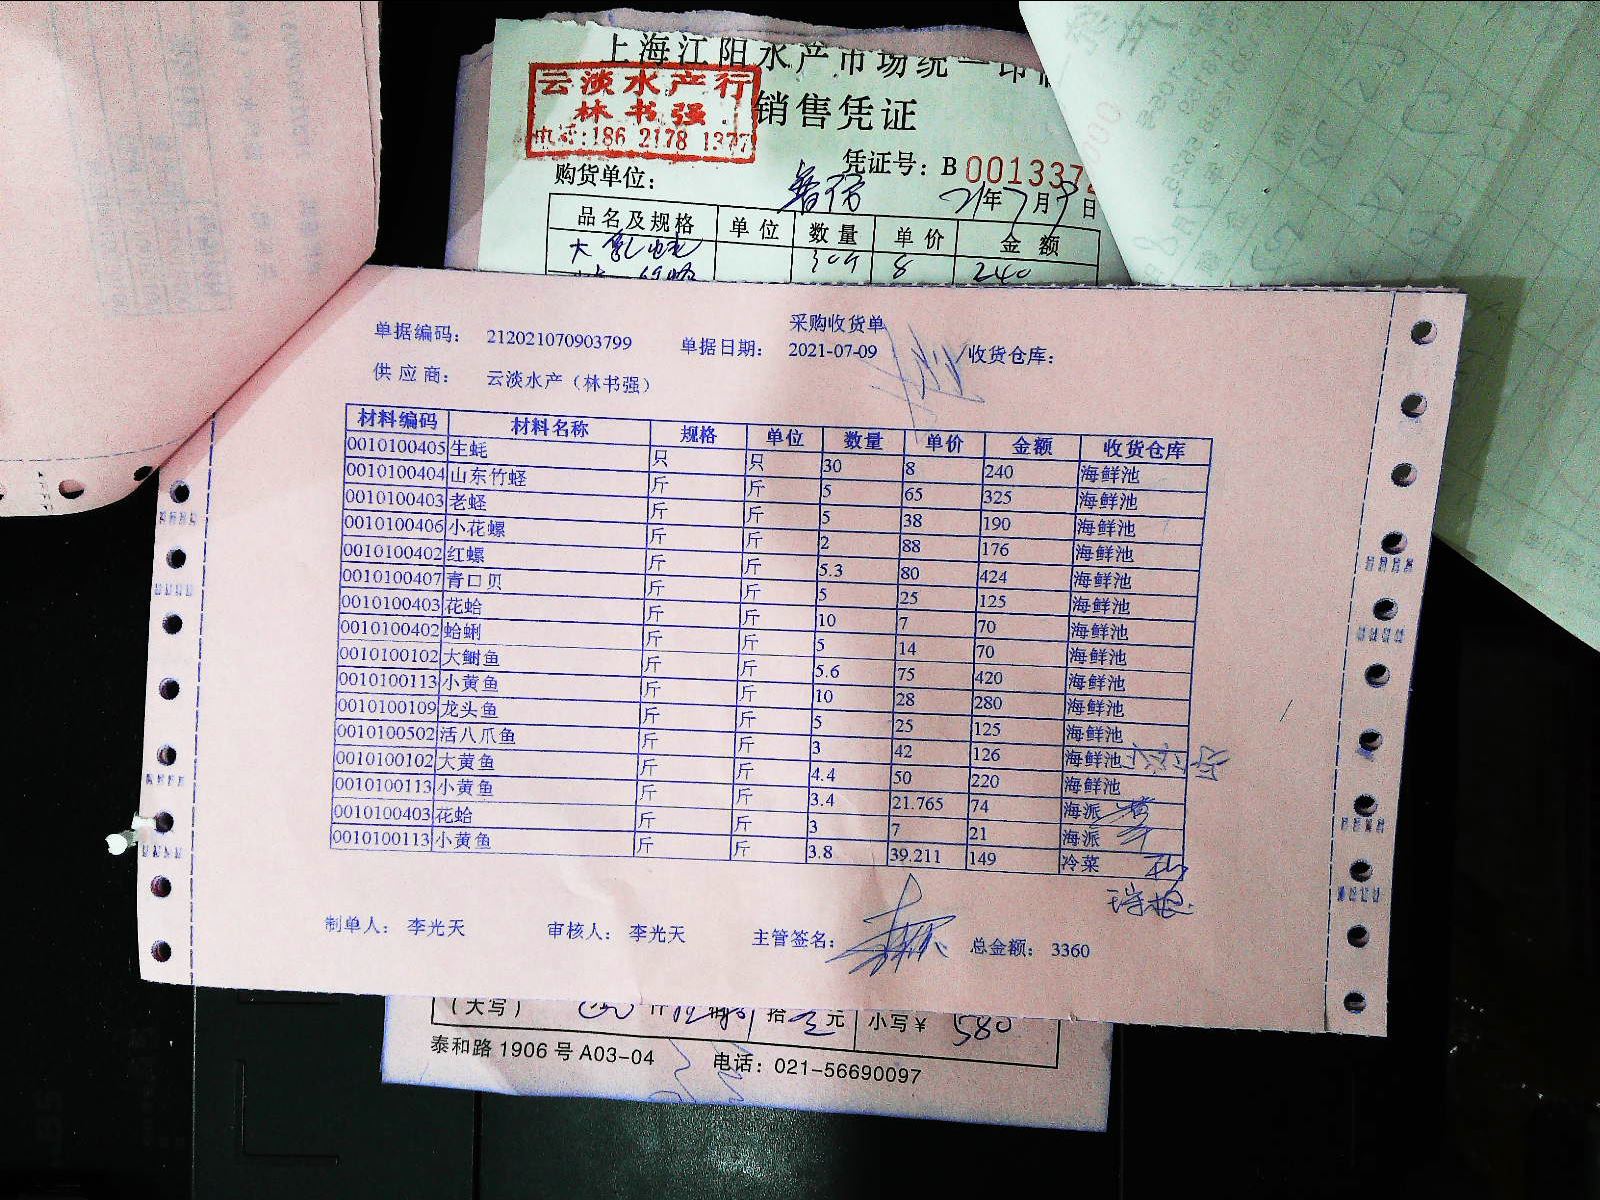 上海江阳水产市场统一印制
云淡水产行
林书强
电话:186 2178 1377
销售凭证
凭证号: B 001337
购货单位:
21年7月9日
品名及规格 单位 数量 单价 金额
8 240
采购收货单
单据编码: 212021070903799 单据日期: 2021-07-09 收货仓库:
供应商: 云淡水产（林书强）
材料编码 材料名称 规格 单位 数量 单价 金额 收货仓库
0010100405 生蚝 只 只 30 8 240 海鲜池
0010100404 山东竹蛏 斤 斤 5 65 325 海鲜池
0010100403 老蛏 斤 斤 5 38 190 海鲜池
0010100406 小花螺 斤 斤 2 88 176 海鲜池
0010100402 红螺 斤 斤 5.3 80 424 海鲜池
0010100407 青口贝 斤 斤 5 25 125 海鲜池
0010100403 花蛤 斤 斤 10 7 70 海鲜池
0010100402 蛤蜊 斤 斤 5 14 70 海鲜池
0010100102 大鲥鱼 斤 斤 5.6 75 420 海鲜池
0010100113 小黄鱼 斤 斤 10 28 280 海鲜池
0010100109 龙头鱼 斤 斤 5 25 125 海鲜池
0010100502 活八爪鱼 斤 斤 3 42 126 海鲜池
0010100102 大黄鱼 斤 斤 4.4 50 220 海鲜池
0010100113 小黄鱼 斤 斤 3.4 21.765 74 海派
0010100403 花蛤 斤 斤 3 7 21 海派
0010100113 小黄鱼 斤 斤 3.8 39.211 149 冷菜
制单人: 李光天 审核人: 李光天 主管签名: 总金额: 3360
（大写） 仟 佰 拾 元 小写￥ 580
泰和路1906号A03-04 电话: 021-56690097